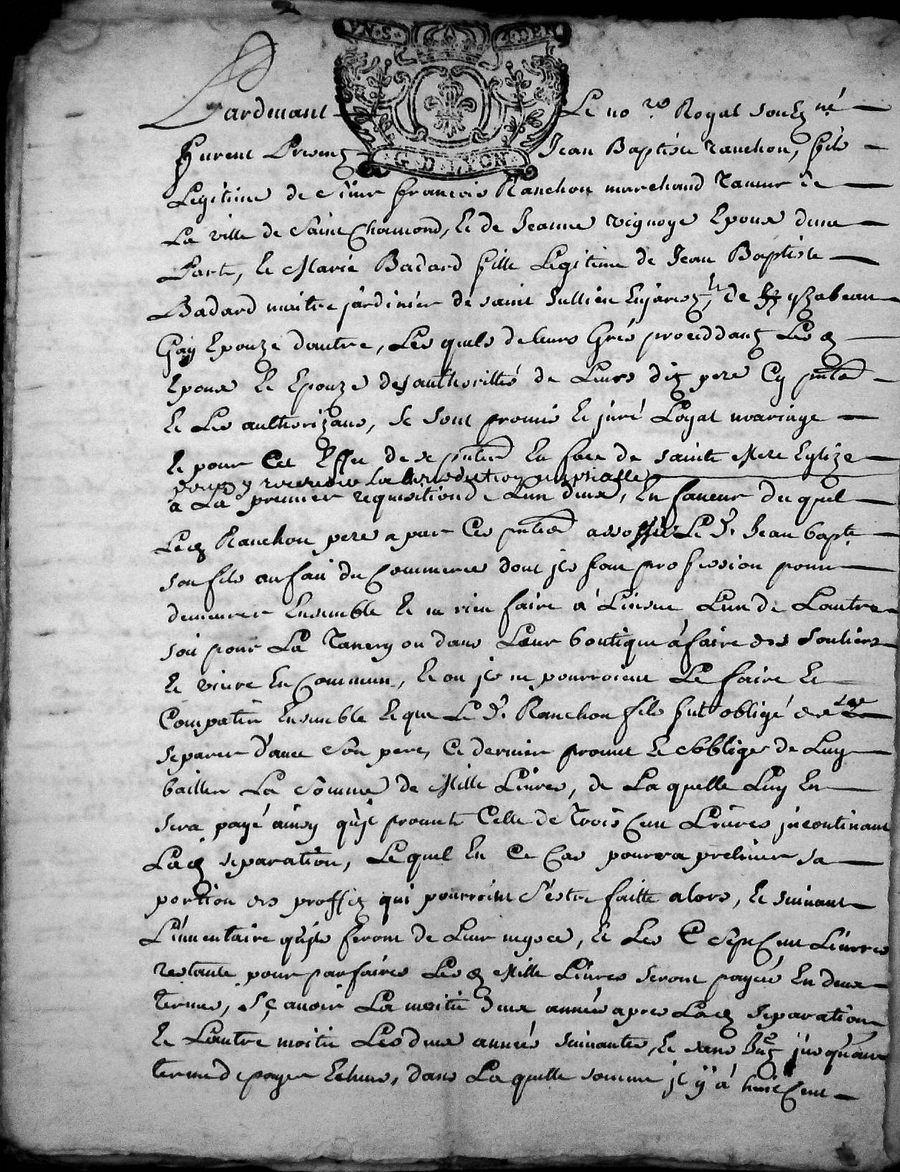 VN·S· 4 DEN
G D LYON
Pardevant Le no.re Royal soubz.né
furent presentz Jean Baptiste Ranchon, fils
Legitime de sieur françois Ranchon marchand Taneur de
La ville de Saint Chamond, et de Jeanne vignoye Epoux dune
Part, et Marie Badard fille Legitime de Jean Baptiste
Badard maitre jardinier de saint Jullien Enjarez, et de yzabeau
Gay Epouze d'autre, Les quels de leurs Grés proceddant Lesd
Epoux et Epouze des authorittés de Leurs ditz pere Cy pntes
et Les authorizans, se sont promis et juré Loyal mariage
et pour Cet Effet de se pnter En face de sainte Mere Eglize
pour y recevoir La benediction nuptialle
a La premier requisition de Lun deux, En faveur du quel
Led Ranchon pere a par Ces pntes assossié Le d. Jean bapte
son fils au fait du Commerce dont jls font profession pour
demeurer Ensemble et ne rien faire a L'insceu Lun de Lautre
soit pour La Tanery ou dans Leur boutique a faire des souliers
et vivre En Commun, et ou jls ne pourroient Le faire et
Compatir Ensemble et que Le d. Ranchon fils fut obligé de se
separer d'avec son pere, Ce dernier promet et s'obblige de Luy
bailler La somme de Mille Livres, de La quelle Luy En
sera payé ainsy qu'jl promet Celle de Trois Cent Livres jncontinant
Lad separation, Lequel En Ce Cas pourra preliever sa
portion des proffitz qui pourroint s'estre faitte alors, et suivant
L'inventaire qu'jls feront de Leur negoce, et Les sept Cent Livres
restante pour parfaire Lesd Mille Livres seront payés En deux
termes, sçavoir La moitié dune année apres Lad separation
et Lautre moitié Les deux années suivantes, et sans jusquaux
termes de payer Echus, dans La quelle somme jl y a huit Cent